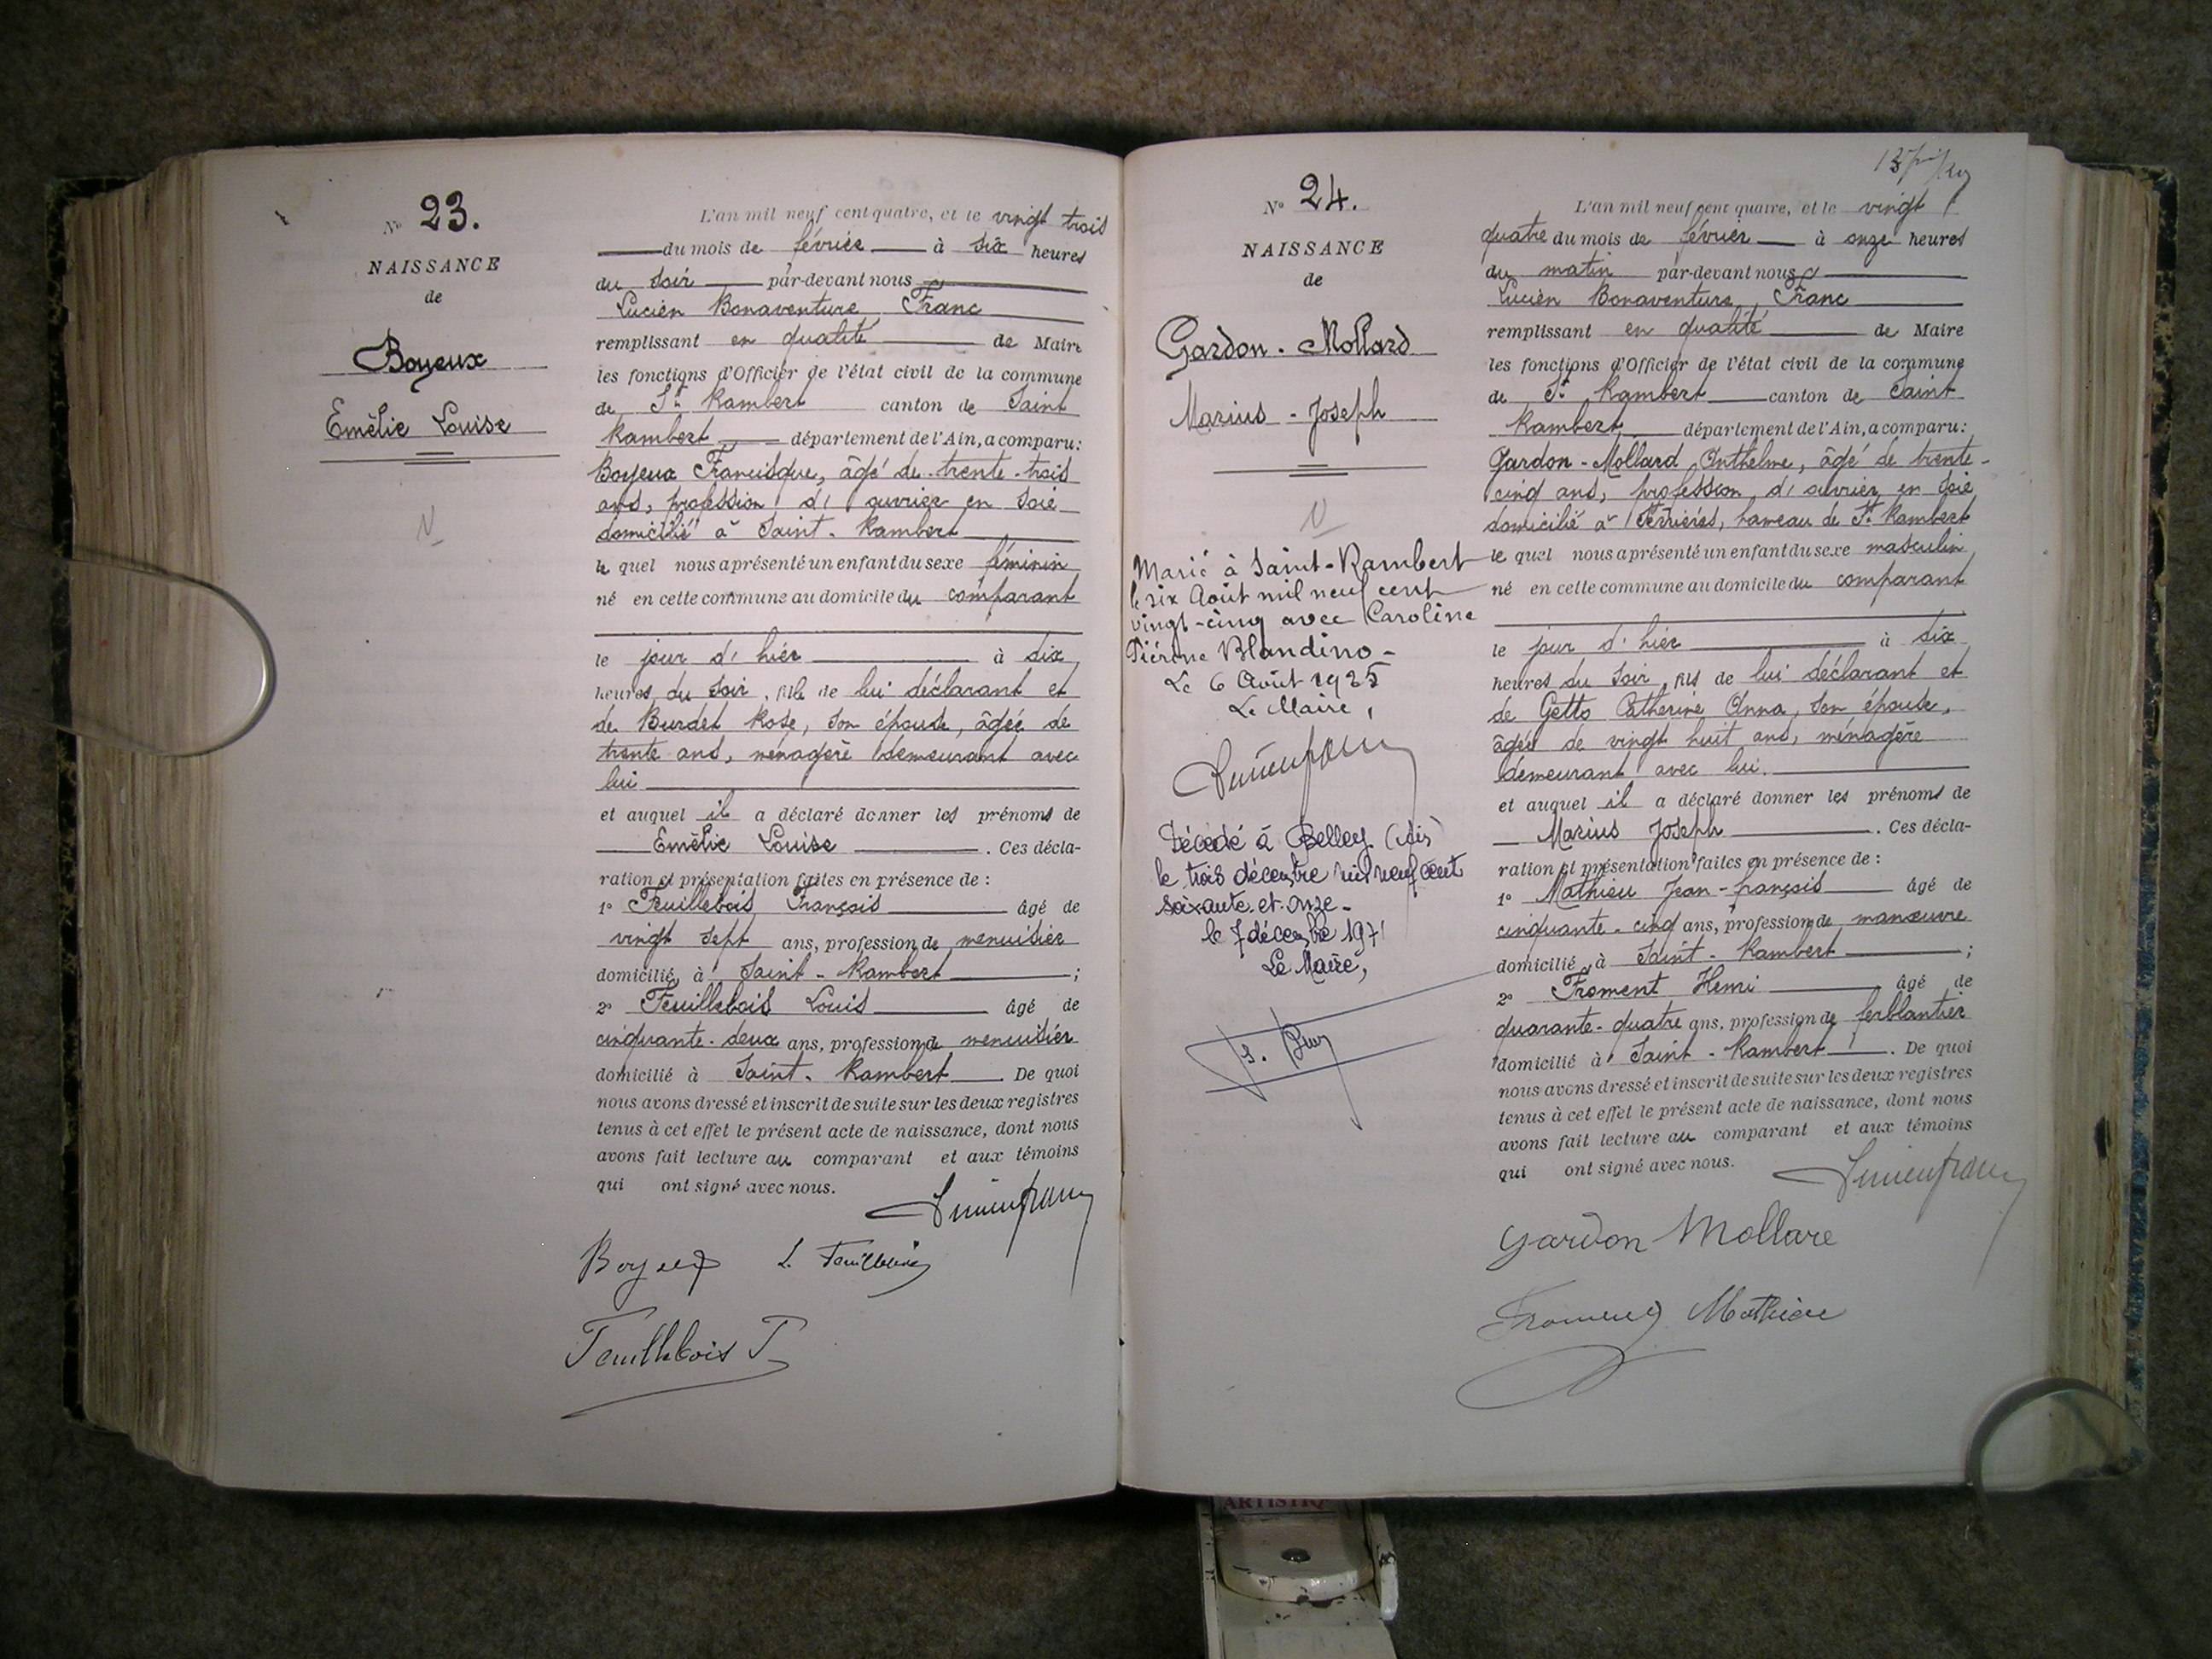 N° 23.
NAISSANCE
de
Boyeux
Emélie Louise
N
L'an mil neuf cent quatre, et le vingt trois
du mois de février à six heures
du soir par-devant nous
Lucien Bonaventure Franc
remplissant en qualité de Maire
les fonctions d'Officier de l'état civil de la commune
de St Rambert canton de Saint
Rambert département de l'Ain, a comparu:
Boyeux Francisque, âgé de trente-trois
ans, profession d'ouvrier en soie
domicilié à Saint-Rambert
le quel nous a présenté un enfant du sexe féminin
né en cette commune au domicile du comparant
le jour d'hier à six
heures du soir, fille de lui déclarant et
de Burdet Rose, son épouse, âgée de
trente ans, ménagère demeurant avec
lui
et auquel il a déclaré donner les prénoms de
Emélie Louise. Ces décla-
ration et présentation faites en présence de :
1° Feuillebois François âgé de
vingt sept ans, profession de menuisier
domicilié à Saint-Rambert ;
2° Feuillebois Louis âgé de
cinquante-deux ans, profession de menuisier
domicilié à Saint-Rambert. De quoi
nous avons dressé et inscrit de suite sur les deux registres
tenus à cet effet le présent acte de naissance, dont nous
avons fait lecture au comparant et aux témoins
qui ont signé avec nous.
Lucien franc
Boyeux L. Feuillebois
Feuillebois F
N° 24.
NAISSANCE
de
Gardon-Mollard
Marius-Joseph
N
Marié à Saint-Rambert
le six Août mil neuf cent
vingt-cinq avec Caroline
Piérine Blandino-
Le 6 Août 1925
Le Maire,
Lucien franc
Décédé à Belley (Ain)
le trois décembre mil neuf cent
soixante-et-onze-
le 7 décembre 1971
Le Maire,
L'an mil neuf cent quatre, et le vingt
quatre du mois de février à onze heures
du matin par-devant nous
Lucien Bonaventure Franc
remplissant en qualité de Maire
les fonctions d'Officier de l'état civil de la commune
de St Rambert canton de Saint
Rambert département de l'Ain, a comparu:
Gardon-Mollard Anthelme, âgé de trente-
cinq ans, profession d'ouvrier en soie
domicilié à Serrières, hameau de St Rambert
le quel nous a présenté un enfant du sexe masculin,
né en cette commune au domicile du comparant
le jour d'hier à six
heures du soir, fils de lui déclarant et
de Getto Catherine Anna, son épouse,
âgée de vingt huit ans, ménagère
demeurant avec lui.
et auquel il a déclaré donner les prénoms de
Marius Joseph. Ces décla-
ration et présentation faites en présence de :
1° Mathieu Jean-françois âgé de
cinquante-cinq ans, profession de manœuvre
domicilié à Saint-Rambert ;
2° Froment Henri âgé de
quarante-quatre ans, profession de ferblantier
domicilié à Saint-Rambert. De quoi
nous avons dressé et inscrit de suite sur les deux registres
tenus à cet effet le présent acte de naissance, dont nous
avons fait lecture au comparant et aux témoins
qui ont signé avec nous.
Lucien franc
Gardon Mollare
Froment Mathieu
ARTISTIQ